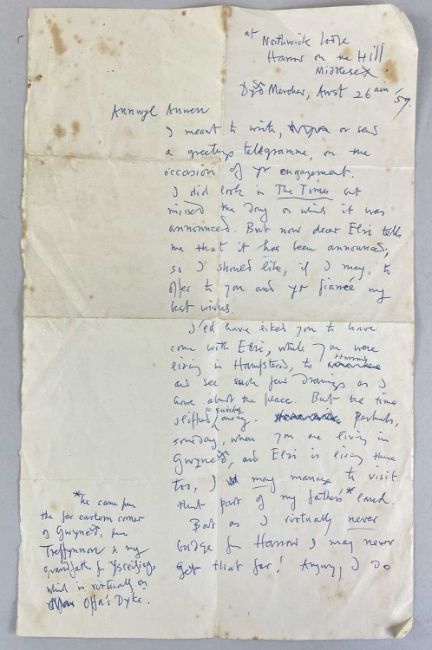 at Northwick Lodge
Harrow on the Hill
Middlesex
Mercher, Awst 26 '59.
Annwyl Anwen
I meant to write, or send
a greetings telegramme, on the
occasion of yr engagement.
I did look in The Times but
missed the day on which it was
announced. But now dear Elsi tells
me that it has been announced,
so I should like, if I may, to
offer to you and yr fiancé my
best wishes.
I'ld have liked you to have
come with Elsi, while you were
living in Hampstead, to Harrow
and see such few drawings as I
have about the place. But the time
slipped so quickly away. perhaps,
someday, when you are living in
Gwynedd, and Elsi is living there
too, I may manage to visit
that part of my father's* land.
But as I virtually never
budge fr Harrow I may never
get that far! Anyway, I do
*he came from
the far eastern corner
of Gwynedd, from
Treffynnon & my
grandfather fr Ysceifiog
which is virtually on
Offa's Dyke.